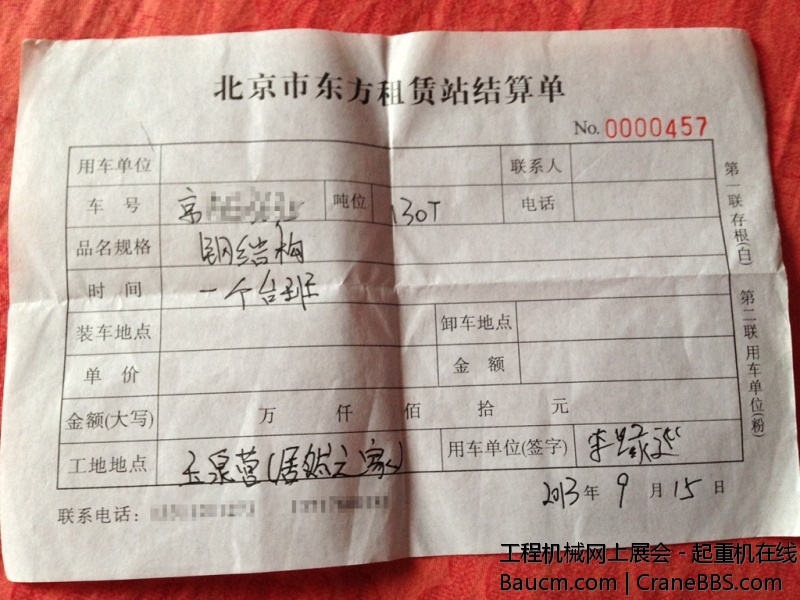 北京市东方租赁站结算单
No. 0000457
用车单位 联系人
车 号 京 吨位 130T 电话
品名规格 钢结构
时 间 一个台班
装车地点 卸车地点
单 价 金 额
金额(大写) 万 仟 佰 拾 元
工地地点 玉泉营(居然之家) 用车单位(签字) 李
2013年 9 月 15 日
联系电话:
第一联存根(白)
第二联用车单位(粉)
工程机械网上展会 - 起重机在线
Baucm.com | CraneBBS.com